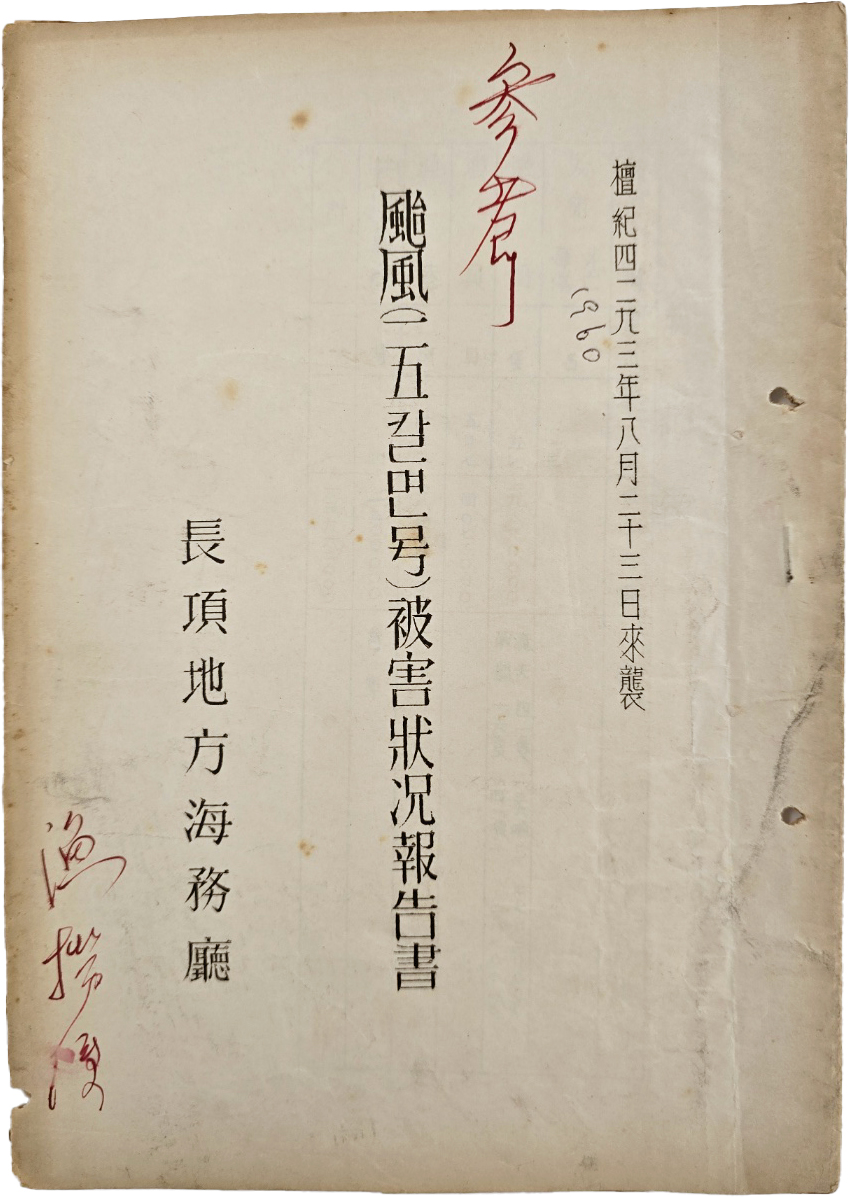 檀紀四二九三年八月二十三日來襲
1960
參考
颱風(二五칼면号)被害狀况報告書
長項地方海務廳
漁撈